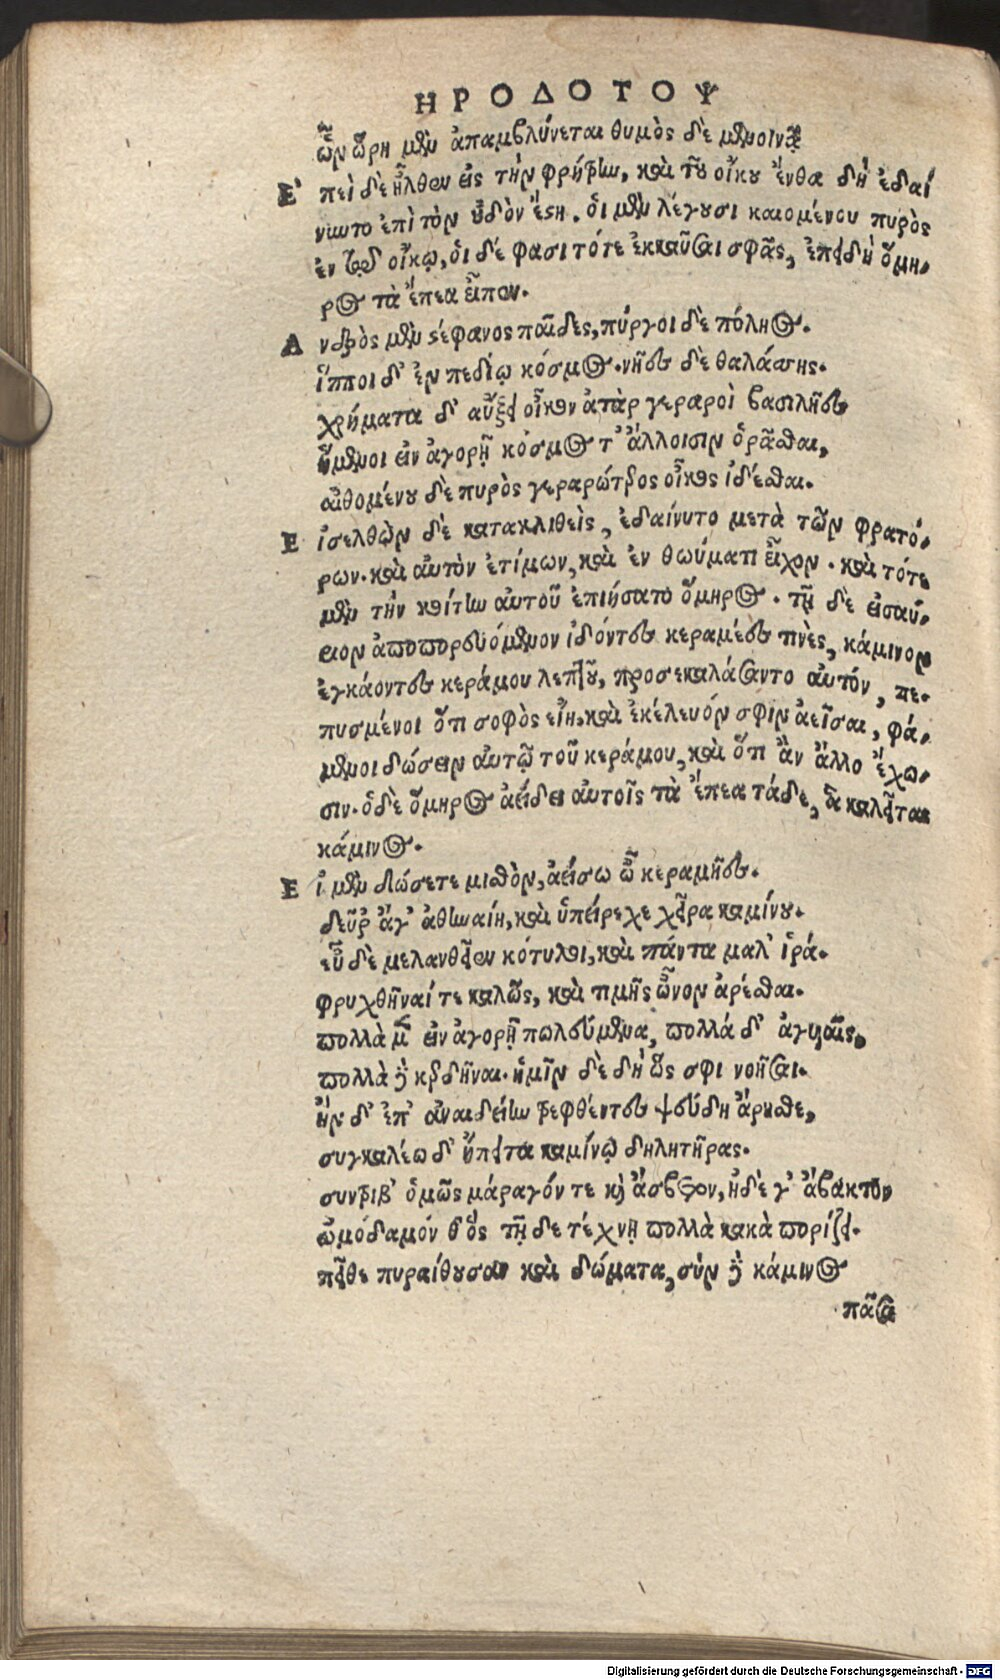 ΗΡΟΔΟΤΟΥ
ὧν ὥρη μὲν ἀπαμβλύνεται θυμὸς δὲ μενοινᾷ
Ε᾽ πεὶ δὲ ἦλθεν εἰς τὴν φρήτρην, καὶ τοῦ οἴκου ἔνθα δὴ ἐδαί
νυντο ἐπὶ τὸν ὀδὸν ἔστη. ὁι μὲν λέγουσι καιομένου πυρὸς
ἐν τῷ οἴκῳ, ὁι δέ φασι τότε ἐκκαῦσαι σφᾶς, ἐπειδὴ ὅμη-
ρος τὰ ἔπεα εἶπεν.
Α νδρὸς μὲν στέφανος παῖδες, πύργοι δὲ πόληος.
ἵπποι δ' ἐν πεδίῳ κόσμος. νῆες δὲ θαλάσσης.
χρήματα δ' αὔξει οἶκον ἀτὰρ γεραροὶ βασιλῆες
ἥμενοι εἰν ἀγορῇ κόσμος τ' ἄλλοισιν ὁρᾶσθαι,
αἰθομένου δὲ πυρὸς γεραρώτερος οἶκος ἰδέσθαι.
Ε ἰσελθὼν δὲ κατακλιθεὶς, ἐδαίνυτο μετὰ τῶν φρατό-
ρων. καὶ αὐτὸν ἐτίμων, καὶ ἐν θωύματι εἶχον. καὶ τότε
μὲν τὴν κοίτην αὐτοῦ ἐπιήσατο ὅμηρος. τῇ δὲ εἰσαύ-
ειον ἀποπορευόμενον ἰδόντες κεραμέες τινὲς, κάμινον
ἐγκάοντες κεράμου λεπτοῦ, προσεκαλέσαντο αὐτόν, πε-
πυσμένοι ὅτι σοφὸς εἴη. καὶ ἐκέλευόν σφιν ἀεῖσαι, φά-
μενοι δώσειν αὐτῷ τοῦ κεράμου, καὶ ὅτι ἂν ἄλλο ἔχω-
σιν. ὁ δὲ ὅμηρος ἀείδει αὐτοῖς τὰ ἔπεα τάδε, ἃ καλεῖται
κάμινος.
Ε ἰ μὲν δώσετε μισθὸν, ἀείσω ὦ κεραμῆες.
δεῦρ' ἄγ' ἀθηναίη, καὶ ὑπείρεχε χεῖρα καμίνου.
εὖ δὲ μελανθεῖεν κότυλοι, καὶ πάντα μαλ' ἱρά.
φρυχθῆναί τε καλῶς, καὶ τιμῆς ὦνον ἀρέσθαι.
πολλὰ μὲν εἰν ἀγορῇ πωλεύμενα, πολλά δ' ἀγυιαῖς.
πολλὰ δὲ κερδῆναι. ἡμῖν δὲ δὴ ὥς σφι νοῆσαι.
ἢν δ' ἐπ' ἀναιδείην τρεφθέντες ψεύδη ἄρησθε,
συγκαλέω δ' ἤπειτα καμίνῳ δηλητῆρας.
συντριβ' ὁμῶς μάραγόν τε καὶ ἄσβετον, ἠδέ γ' ἄβακτον
ὠμόδαμόν θ' ὃς τῇδε τέχνῃ πολλὰ κακὰ πορίζει.
πεῖθε πυραίθουσαν καὶ δώματα, σὺν δὲ κάμινος
πᾶσα
Digitalisierung gefördert durch die Deutsche Forschungsgemeinschaft - DFG